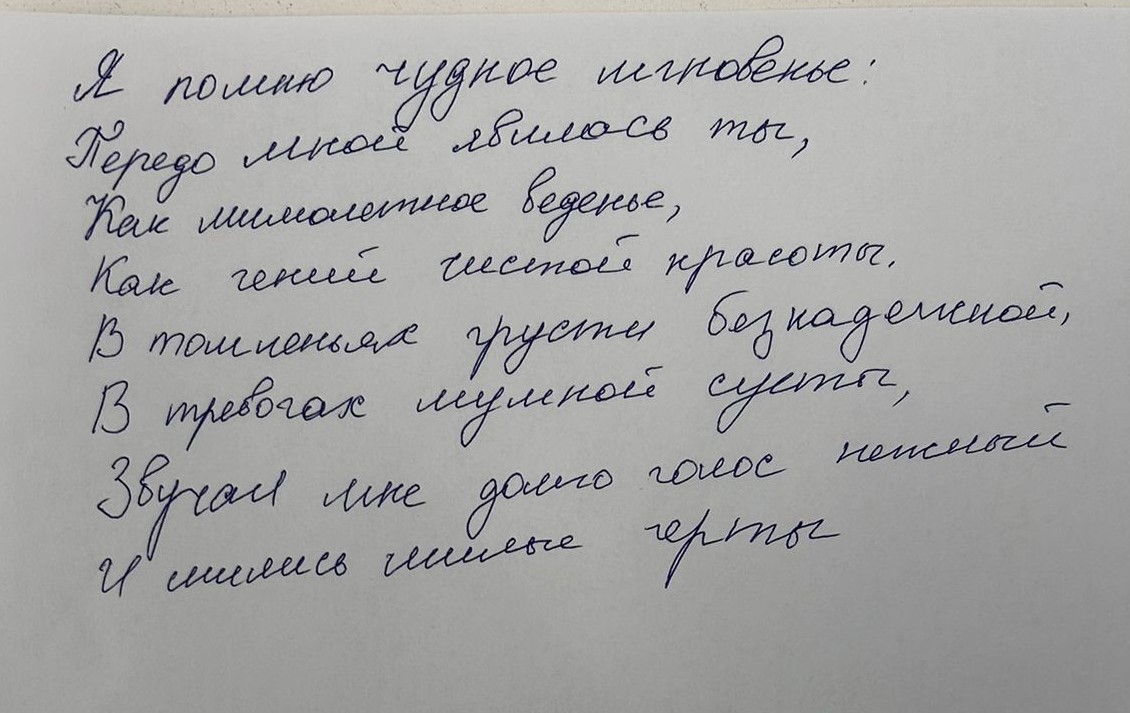 Я помню чудное мгновенье:
Передо мной явилась ты,
Как мимолетное веденье,
Как гений чистой красоты.
В томленьях грусти безнадежной,
В тревогах шумной суеты,
Звучал мне долго голос нежный
И снились милые черты